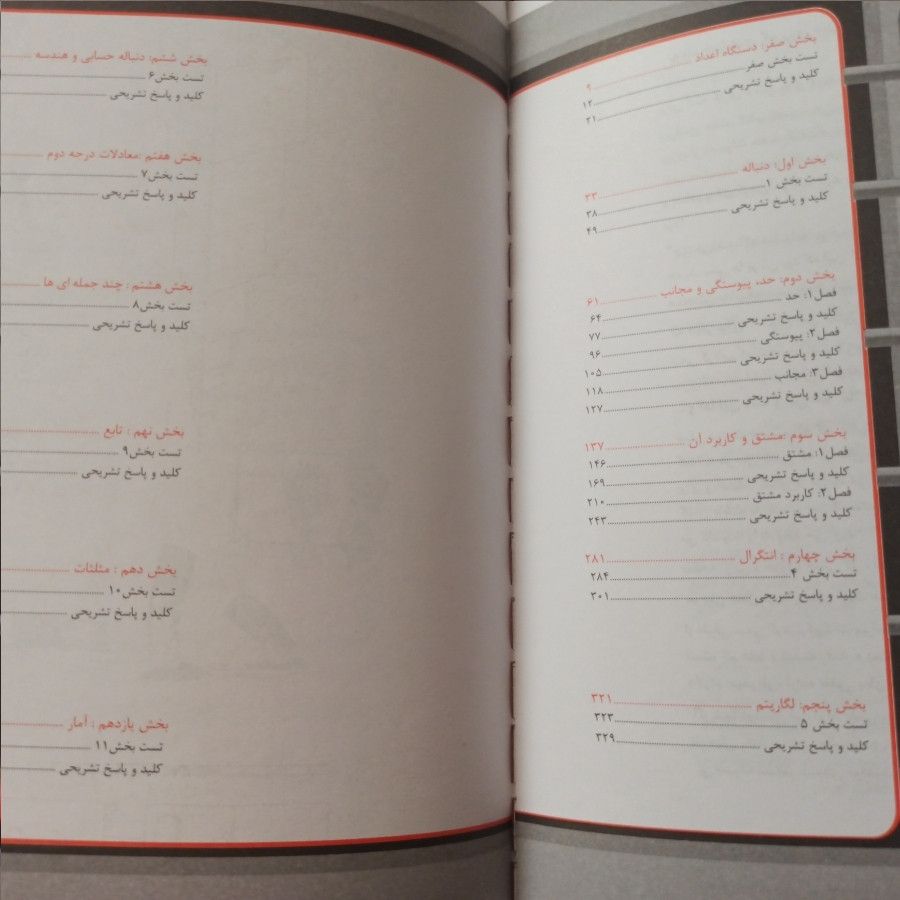 بخش صفر: دستگاه اعداد ........ ۹
تست بخش صفر ........ ۱۲
کلید و پاسخ تشریحی ........ ۲۱
بخش اول: دنباله ........ ۳۳
تست بخش ۱ ........ ۳۸
کلید و پاسخ تشریحی ........ ۴۹
بخش دوم: حد، پیوستگی و مجانب ........ ۶۱
فصل۱: حد ........ ۶۴
کلید و پاسخ تشریحی ........ ۷۷
فصل۲: پیوستگی ........ ۹۶
کلید و پاسخ تشریحی ........ ۱۰۵
فصل۳: مجانب ........ ۱۱۸
کلید و پاسخ تشریحی ........ ۱۲۷
بخش سوم :مشتق و کاربرد آن ........ ۱۳۷
فصل۱: مشتق ........ ۱۴۶
کلید و پاسخ تشریحی ........ ۱۶۹
فصل۲: کاربرد مشتق ........ ۲۱۰
کلید و پاسخ تشریحی ........ ۲۴۳
بخش چهارم : انتگرال ........ ۲۸۱
تست بخش ۴ ........ ۲۸۴
کلید و پاسخ تشریحی ........ ۳۰۱
بخش پنجم: لگاریتم ........ ۳۲۱
تست بخش ۵ ........ ۳۲۳
کلید و پاسخ تشریحی ........ ۳۲۹
بخش ششم: دنباله حسابی و هندسه ........
تست بخش۶ ........
کلید و پاسخ تشریحی ........
بخش هفتم :معادلات درجه دوم ........
تست بخش۷ ........
کلید و پاسخ تشریحی ........
بخش هشتم : چند جمله ای ها ........
تست بخش۸ ........
کلید و پاسخ تشریحی ........
بخش نهم : تابع ........
تست بخش۹ ........
کلید و پاسخ تشریحی ........
بخش دهم : مثلثات ........
تست بخش۱۰ ........
کلید و پاسخ تشریحی ........
بخش یازدهم : آمار ........
تست بخش۱۱ ........
کلید و پاسخ تشریحی ........